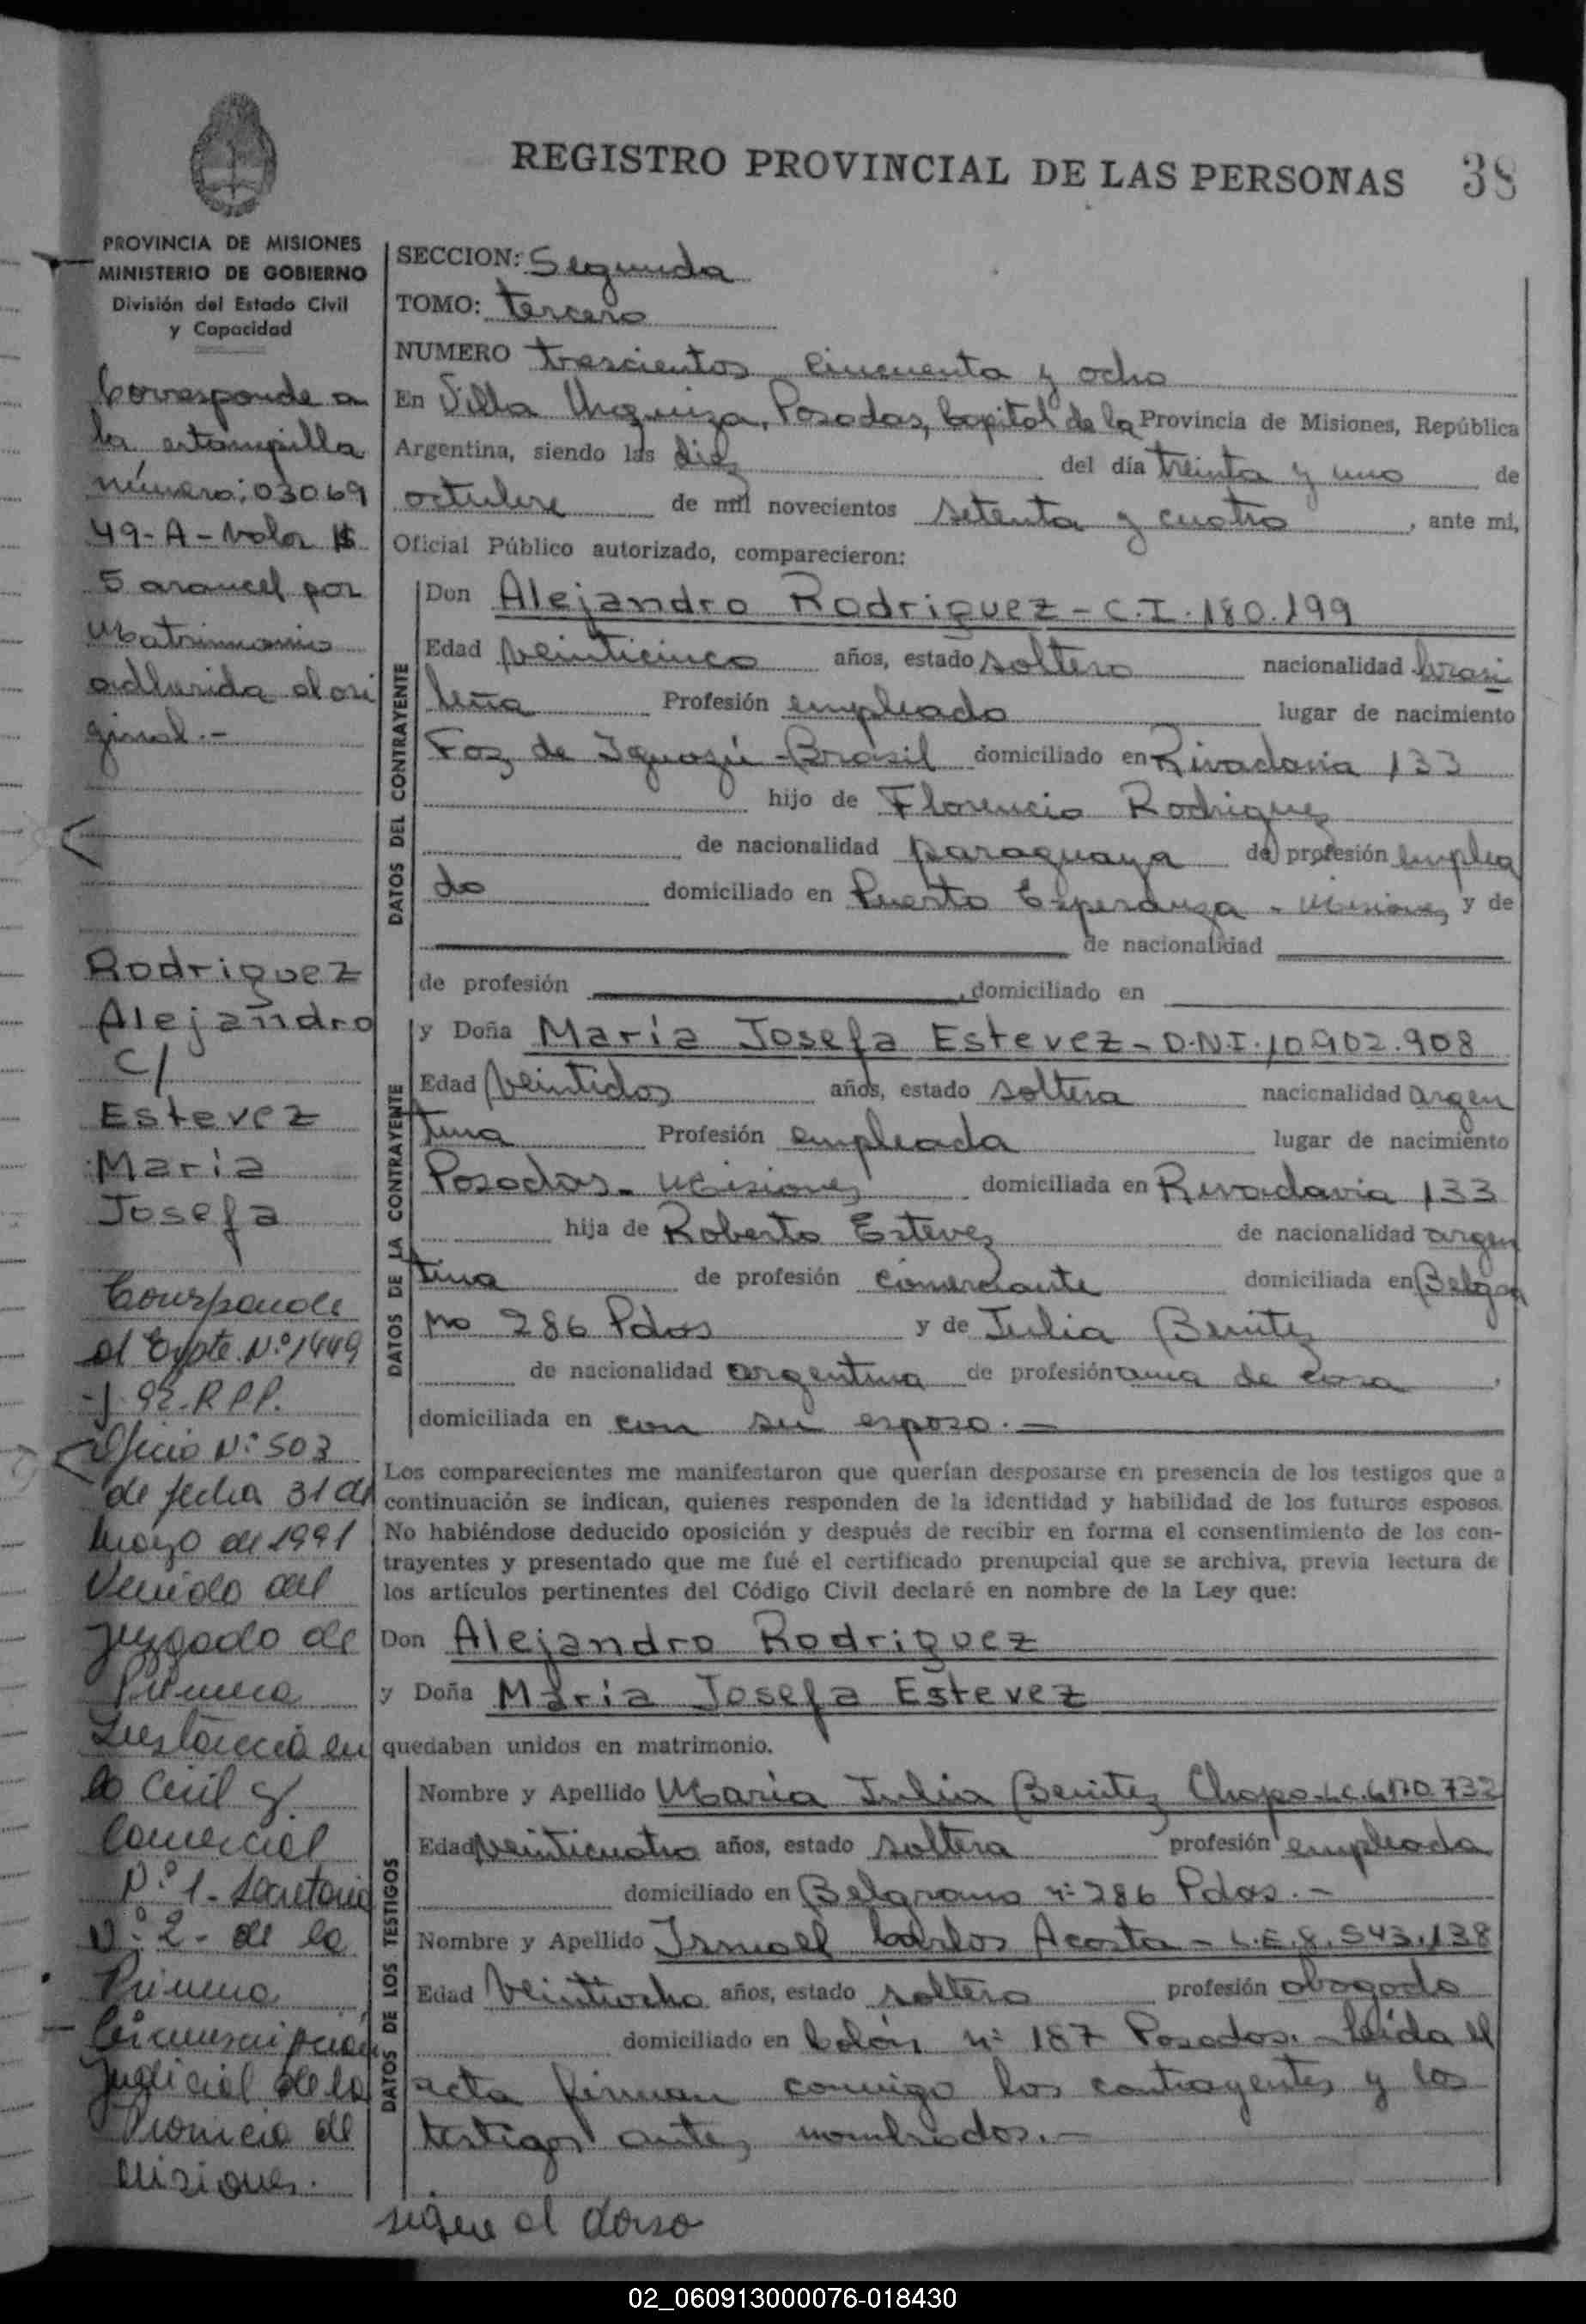 REGISTRO PROVINCIAL DE LAS PERSONAS 38
PROVINCIA DE MISIONES
MINISTERIO DE GOBIERNO
División del Estado Civil
y Capacidad
Corresponde a
la estampilla
número: 03069
49-A-Valor $
5 arancel por
Matrimonio
adherida al ori
ginal.-
Rodriguez
Alejandro
C/
Estevez
Maria
Josefa
Corresponde
al Expte. Nº 1449
-J-92-R.P.P.
Oficio Nº 503
de fecha 31 de
Marzo de 1991
Venido del
Juzgado de
Primera
Instancia en
lo Civil y
Comercial
Nº 1- Secretaria
Nº 2- de la
Primera
Circunscripción
Judicial de la
Provincia de
Misiones.
SECCION: Segunda
TOMO: tercero
NUMERO trescientos cincuenta y ocho
En Villa Urquiza, Posadas, Capital de la Provincia de Misiones, República
Argentina, siendo las diez del día treinta y uno de
octubre de mil novecientos setenta y cuatro, ante mi,
Oficial Público autorizado, comparecieron:
DATOS DEL CONTRAYENTE
Don Alejandro Rodriguez-C.I.180.199
Edad veinticinco años, estado soltero nacionalidad brasi
leña Profesión empleado lugar de nacimiento
Foz de Iguazú-Brasil domiciliado en Rivadavia 133
hijo de Florencio Rodriguez
de nacionalidad paraguaya de profesión emplea
do domiciliado en Puerto Esperanza - Misiones y de
de nacionalidad
de profesión , domiciliado en
DATOS DE LA CONTRAYENTE
y Doña Maria Josefa Estevez-D.N.I.10.902.908
Edad veintidos años, estado soltera nacionalidad argen
tina Profesión empleada lugar de nacimiento
Posadas- Misiones domiciliada en Rivadavia 133
hija de Roberto Estevez de nacionalidad argen
tina de profesión comerciante domiciliada en Belgra
no 286 Pdas y de Julia Benitez
de nacionalidad argentina de profesión ama de casa,
domiciliada en con su esposo.-
Los comparecientes me manifestaron que querían desposarse en presencia de los testigos que a
continuación se indican, quienes responden de la identidad y habilidad de los futuros esposos.
No habiéndose deducido oposición y después de recibir en forma el consentimiento de los con-
trayentes y presentado que me fué el certificado prenupcial que se archiva, previa lectura de
los artículos pertinentes del Código Civil declaré en nombre de la Ley que:
Don Alejandro Rodriguez
y Doña Maria Josefa Estevez
quedaban unidos en matrimonio.
DATOS DE LOS TESTIGOS
Nombre y Apellido Maria Julia Benitez Chapo-L.C.
Edad veinticuatro años, estado soltera profesión empleada
domiciliado en Belgrano nº 286 Pdas.-
Nombre y Apellido Ismael Carlos Acosta - L.E.8.543.138
Edad veintiocho años, estado soltero profesión abogado
domiciliado en Colón nº 187 Posadas.- Leída el
acta firman conmigo los contrayentes y los
testigos antes nombrados.-
sigue al dorso
02_060913000076-018430